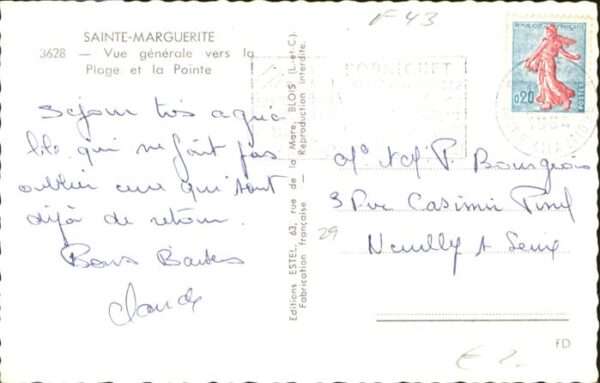 SAINTE-MARGUERITE
3628 — Vue générale vers la
Plage et la Pointe
Séjour très agréa
ble qui ne fait pas
oublier ceux qui sont
déjà de retour.
Bons Baisers
Claude
Editions ESTEL, 63, rue de la Mare, BLOIS (L.-et-C.)
Fabrication française — Reproduction interdite.
F 43
PORNICHET
0,20
POSTES
1964
Bourgeois
3 Rue Casimir Pinel
Neuilly s Seine
29
FD
€ 2-